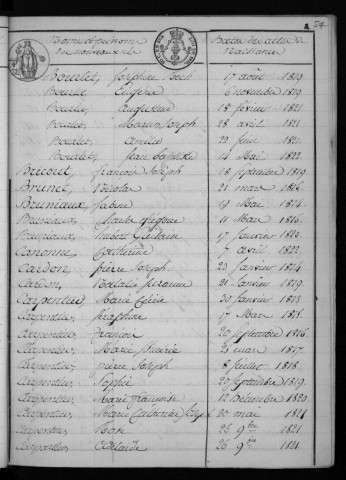 54
Nom et prénoms du nouveau né
Date des actes de naissance
Bourlet, Joseph 17 août 1819
Bourlet Eugénie 6 novembre 1819
Bourlet, Augustine 18 février 1821
Bourlet, Martin Joseph 28 avril 1821
Bourlet, Amélie 1821
Bourlet, Jean baptiste 14 Mai 1822
Bricout, francois Joseph 18 Septembre 1819
Brunet, Nicolas 21 mars 1816
Bruniaux, Sabine 19 Mai 1824
Bruniaux, 11 Mars 1816
Bruniaux, hubert Ghislain 17 février 1823
Canonne, Catherine 7 avril 1822
Cardon, pierre Joseph 23 Janvier 1824
Cardon, Natalie 21 Janvier 1819
Carpentier Marie 30 Janvier 1813
Carpentier, Séraphine 17 Mars 1815
Carpentier, françois 20 Septembre 1816
Carpentier, Marie 25 mars 1817
Carpentier, pierre Joseph 8 Juillet 1818
Carpentier, Sophie 20 Septembre 1819
Carpentier, Marie françoise 12 Décembre 1820
Carpentier, Marie Catherine 20 mai 1824
Carpentier, Rose 25 9bre 1821
Carpentier, Adelaïde 26 9bre 1821